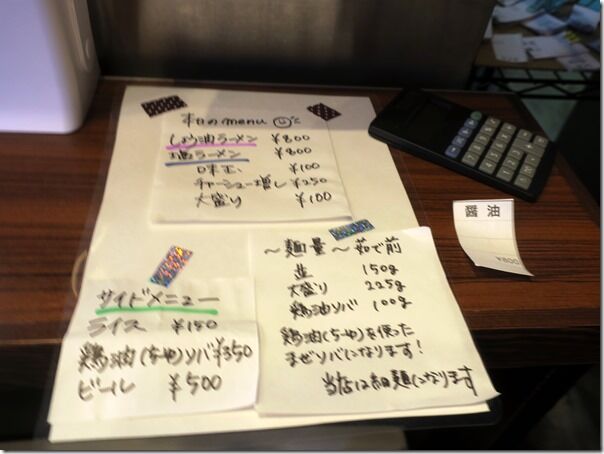 本日のmenu
しょう油ラーメン ¥800
塩ラーメン ¥800
味玉 ¥100
チャーシュー増し ¥250
大盛り ¥100
～麺量～茹で前
並 150g
大盛り 225g
鶏油ソバ 100g
鶏油(ちゆ)を使った
まぜソバになります!
当店は細麺になります
サイドメニュー
ライス ¥150
鶏油(ちゆ)ソバ ¥350
ビール ¥500
醤油
¥800